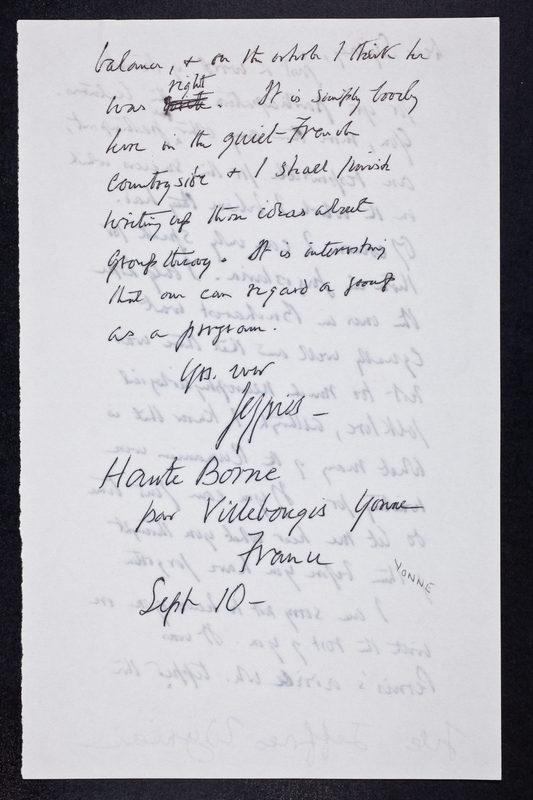 balance, & on the whole I think he
right
was . It is simply lovely
here in the quiet French
countryside & I shall finish
writing up those ideas about
group theory. It is interesting
that one can regard a group
as a program.
Yrs. ever
Jeffries -
Haute Borne
par Villebougis Yonne
France
YONNE
Sept 10 -